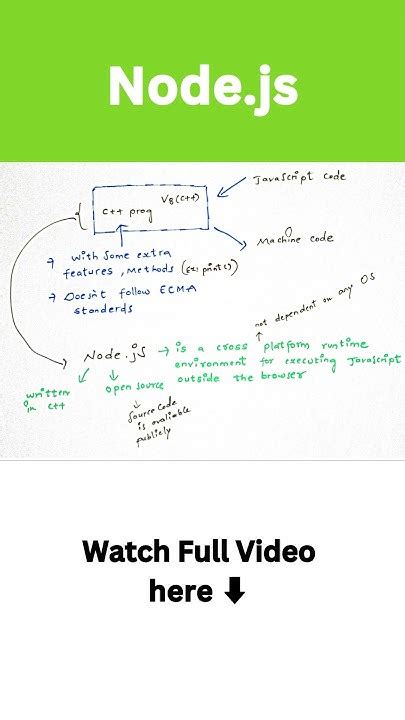 Node.js
Javascript code
V8(C++)
C++ prog
Machine code
→ with some extra
features, Methods (ex: print())
→ Doesn't follow ECMA
standerds
not dependent on any OS
Node.js → is a cross platform runtime
environment for executing Javascript
outside the browser
written
in C++
open source
Source Code
is avaliable
publicly
Watch Full Video
here ⬇